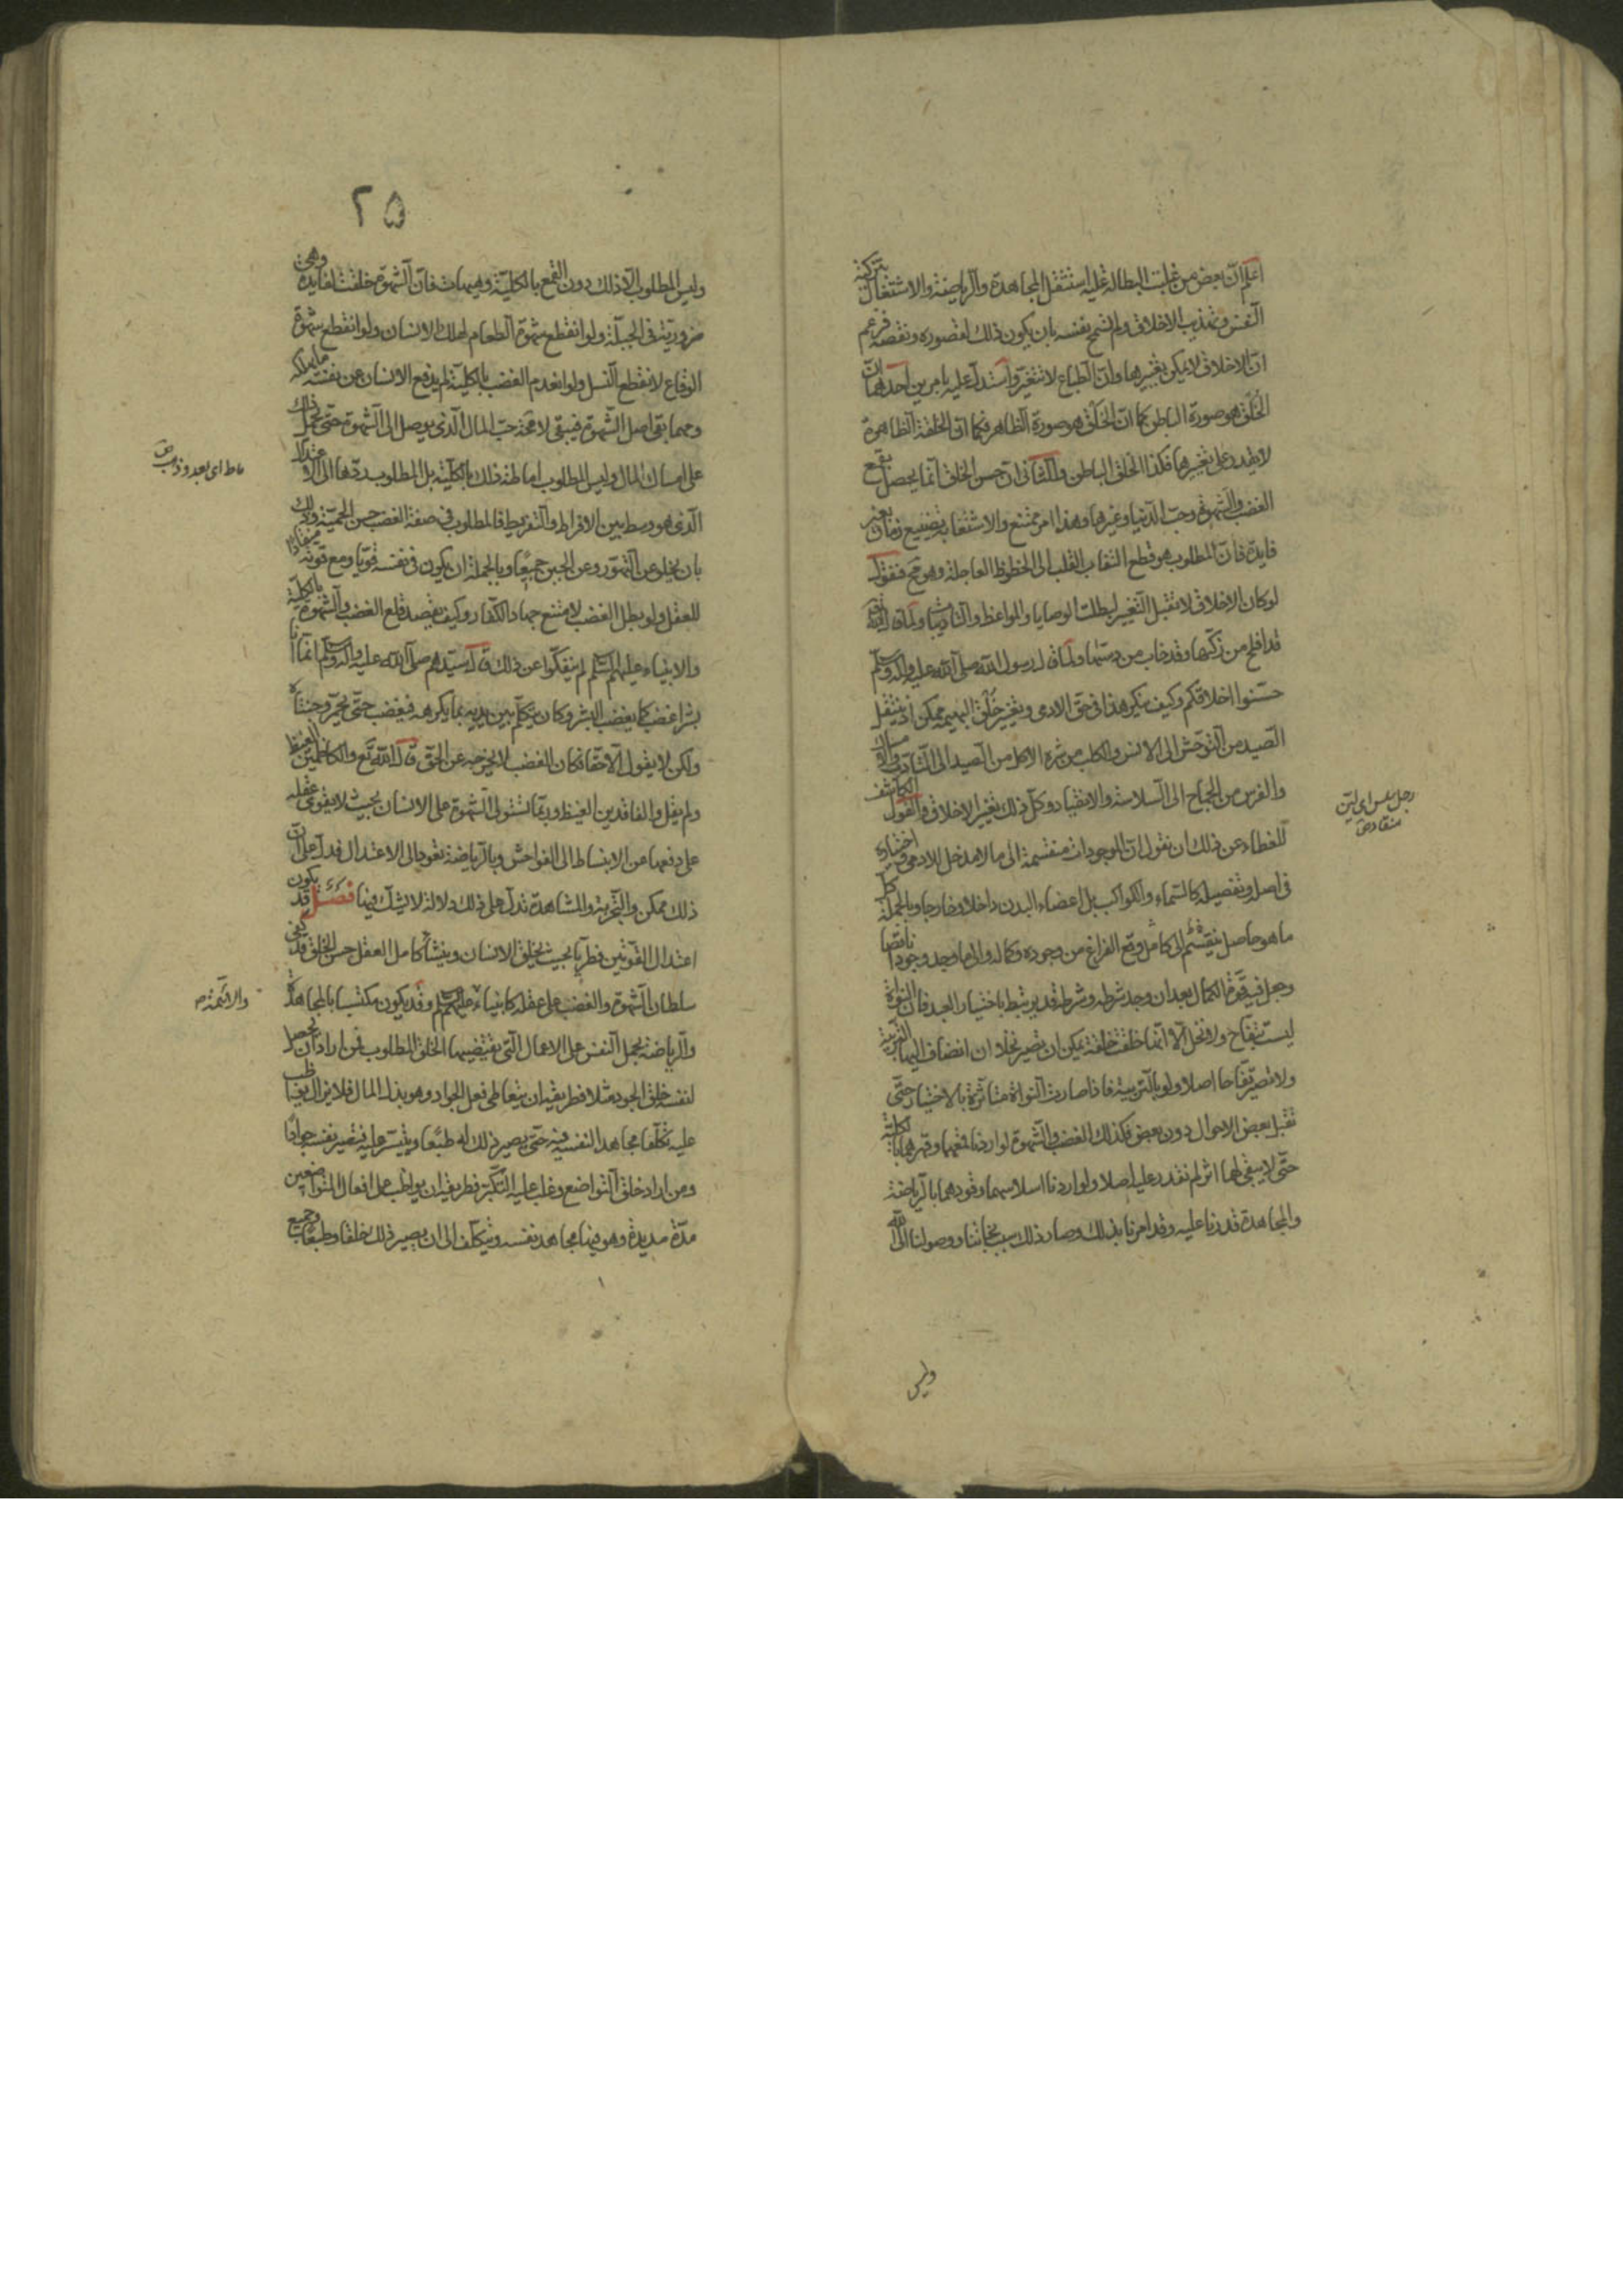 اعلم انّ بعض من غلبت البطالة عليه استثقل المجاهدة والرياضة والاشتغال بتزكية
النفس وتهذيب الاخلاق ولم تسمح نفسه بان يكون ذلك لقصوره ونقصه فزعم
انّ الاخلاق لا يمكن تغييرها وانّ الطباع لا تتغيّر واستدلّ عليه بامرين احدهما انّ
الخُلق هو صورة الباطن كما انّ الخَلق هو صورة الظاهر فكما انّ الخلقة الظاهرة
لا يقدر على تغييرها فكذا الخلق الباطن والثانى انّ حسن الخلق انّما يحصل بقمع
الغضب والشهوة وحبّ الدنيا وغيرها وهذا امر ممتنع والاشتغال به تضييع زمان بغير
فايدة فانّ المطلوب هو قطع التفات القلب الى الحظوظ العاجلة وهو مح فنقول
لو كان الاخلاق لا تقبل التغيير لبطلت الوصايا والمواعظ والتاديبات ولما قال الله تع
قد افلح من زكّيها وقد خاب من دسّيها ولما قال رسول الله صلى الله عليه واله وسلم
حسّنوا اخلاقكم وكيف ينكر هذا فى حق الادمى وتغيير خُلق البهيمة ممكن اذ ينتقل
الصّيد من التوحّش الى الانس والكلب من شره الاكل من الصيد الى التأدّب والامساك
والفرس من الجماح الى السلاسة والانقياد وكلّ ذلك تغيير الاخلاق والقول الكاشف
للغطاء عن ذلك ان نقول انّ الموجودات منقسمة الى ما لا مدخل للادمى واختياره
فى اصله وتفصيله كالسماء والكواكب بل اعضاء البدن داخلا وخارجا وبالجملة كل
ما هو حاصل ينقسم الى كامل وقع الفراغ من وجوده وكماله والى ما وجد وجودا ناقصا
وجعل فيه قوّة الكمال بعد ان وجد شرطه وشرطه قد يرتبط باختيار العبد فان النواة
ليست بتفاح ولا نخل الّا انّها خلقت خلقة يمكن ان تصير نخلا ان انضاف اليها التربية
ولا تصير تفّاحا اصلا ولو بالتربية فاذا صارت النواة متاثرة بالاختيار حتّى
تقبل بعض الاحوال دون بعض فكذلك الغضب والشهوة لو اردنا قمعهما وقهرهما بالكلية
حتّى لا يبقى لهما اثر لم نقدر عليه اصلا ولو اردنا اسلاسهما وقودهما بالرياضة
والمجاهدة قدرنا عليه وقد امرنا بذلك وصار ذلك سبب نجاتنا ووصولنا الى الله
وليس
رجل سلس اى ليّن
منقاد ص
٢٥
وليس المطلوب الّا ذلك دون القمع بالكليّة وهيهات فانّ الشهوة خلقت لفايدة وهى
ضروريّة فى الجبلّة ولو انقطع شهوة الطعام لهلك الانسان ولو انقطع شهوة
الوقاع لانقطع النسل ولو انعدم الغضب بالكلية لم يدفع الانسان عن نفسه ما يهلكه
ومهما بقى اصل الشّهوة فيبقى لا محة حبّ المال الّذى يوصل الى الشهوة حتّى يحمل ذلك
على امساك المال وليس المطلوب اماطة ذلك بالكليّة بل المطلوب ردّها الى الاعتدال
الّذى هو وسط بين الافراط والتفريط فالمطلوب فى صفة الغضب حسن الحميّة وذلك
بان يخلو عن التهوّر وعن الجبن جميعًا وبالجملة ان يكون فى نفسه قويّا ومع قوته منقادا
للعقل ولو بطل الغضب لامتنع جهاد الكفّار وكيف يقصد قلع الغضب والشهوة بالكليّة
والانبياء عليهم السلم لم ينفكّوا عن ذلك قال سيّدهم صلى الله عليه واله وسلم انّما انا
بشر اغضب كما يغضب البشر وكان يتكلّم بين يديه بما يكرهه فيغضب حتّى يحمرّ وجنتاه
ولكن لا يقول الّا حقّا فكان الغضب لا يخرجه عن الحقّ قال الله تع والكاظمين الغيظ
ولم يقل والفاقدين الغيظ وربّما تستولى الشهوة على الانسان بحيث لا يقوى عقله
على دفعها عن الانبساط الى الفواحش وبالرياضة تعود الى الاعتدال فدلّ على انّ
ذلك ممكن والتّجربة والمشاهدة تدلّ على ذلك دلالة لا يشكّ فيها فصل قد يكون
اعتدال القوّتين فطريّا بحيث يخلق الانسان وينشأ كامل العقل حسن الخلق قد كفى
سلطان الشهوة والغضب على عقله كانبياء عليهم السلم وقد يكون مكتسبا بالمجاهدة
والرياضة بحمل النفس على الاعمال الّتى يقتضيها الخلق المطلوب فمن اراد ان يحصل
لنفسه خلق الجود مثلا فطريقه ان يتعاطى فعل الجواد وهو بذل المال فلا يزال يواظب
عليه تكلّفا مجاهدا لنفسه فيه حتّى يصير ذلك له طبعًا ويتيسّر عليه فيصير نفسه جوادًا
ومن اراد خلق التواضع وغلب عليه التكبّر فطريقه ان يواظب على افعال المتواضعين
مدّة مديدة وهو فيها مجاهد نفسه ويتكلّف الى ان يصير ذلك خلقا وطبعًا وجميع
ماط اى بعد وذهب ص
والائمة م